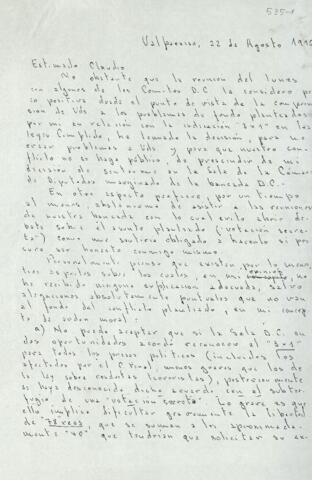 535-1
Valparaíso, 22 de Agosto 199
Estimado Claudio
No obstante que la reunión del lunes
con algunos de los Comités D.C. la considero
positiva desde el punto de vista de la compren
sión de Uds a los problemas de fondo planteados
por mi en relación con la indicación "3x1" en los
he tomado la decisión, para no
crear problemas a Uds. y para que nuestro con
flicto no se haga público, de prescindir de mi
decisión de sentarme en la Sala de la Cámara
de Diputados marginado de la bancada D.C.
En otro aspecto prefiero, por un tiempo
al menos, abstenerme de asistir a las reuniones
de nuestra bancada con lo cual evito abrir de
bate sobre el asunto planteado (votación secre
ta) como me sentiría obligado a hacerlo si pro
curo ser honesto conmigo mismo.
Personalmente pienso que existen por lo menos
tres aspectos sobre los cuales, en mi opinión, no
he recibido ninguna explicación adecuada, salvo
alegaciones absolutamente puntuales que no van
al fondo del conflicto planteado, en mi concep
to de orden moral:
a) No puedo aceptar que si la Sala D.C. en
dos oportunidades acordó reconocer el "3x1"
para todos los presos políticos (incluidos los
afectados por el C. Penal, menos graves que los de
la ley sobre conductas terroristas), posteriormente
se haya desconocido dicho acuerdo con el subter
fugio de una "votación secreta". Lo grave es que
ello implica dificultar gravemente la libertad
de reos que se suman a los aproximada
mente "40" que tendrían que solicitar su ex.